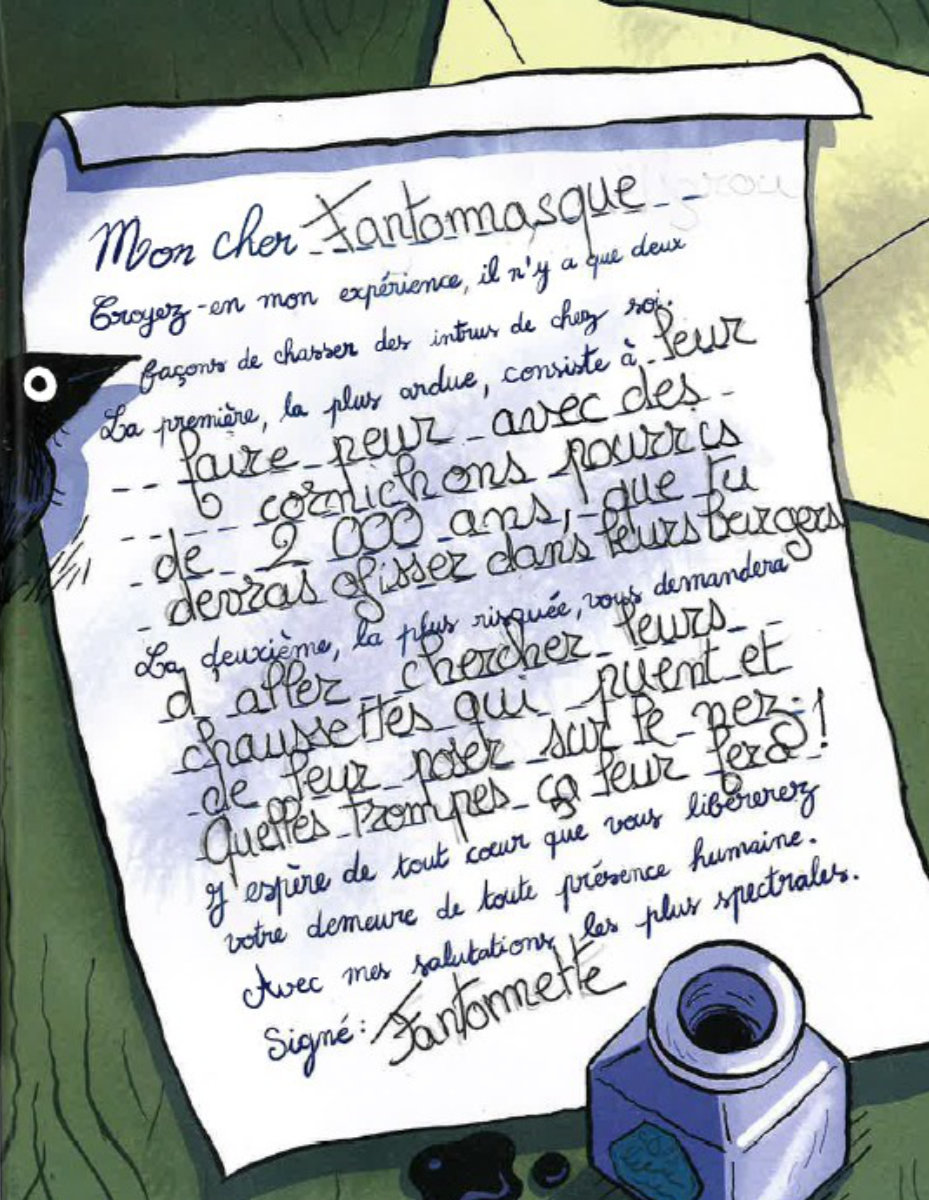 Mon cher Fantomasque
Croyez-en mon expérience, il n'y a que deux
façons de chasser des intrus de chez soi.
La première, la plus ardue, consiste à leur
faire peur avec des
6 cornichons pourris
de 2 000 ans, que tu
devras glisser dans leurs burgers
La deuxième, la plus risquée, vous demandera
d aller chercher leurs
chaussettes qui puent et
de leur poser sur le nez.
Quelles trompes ça leur fera !
J'espère de tout cœur que vous libérerez
votre demeure de toute présence humaine.
Avec mes salutations les plus spectrales.
Signé : Fantommette